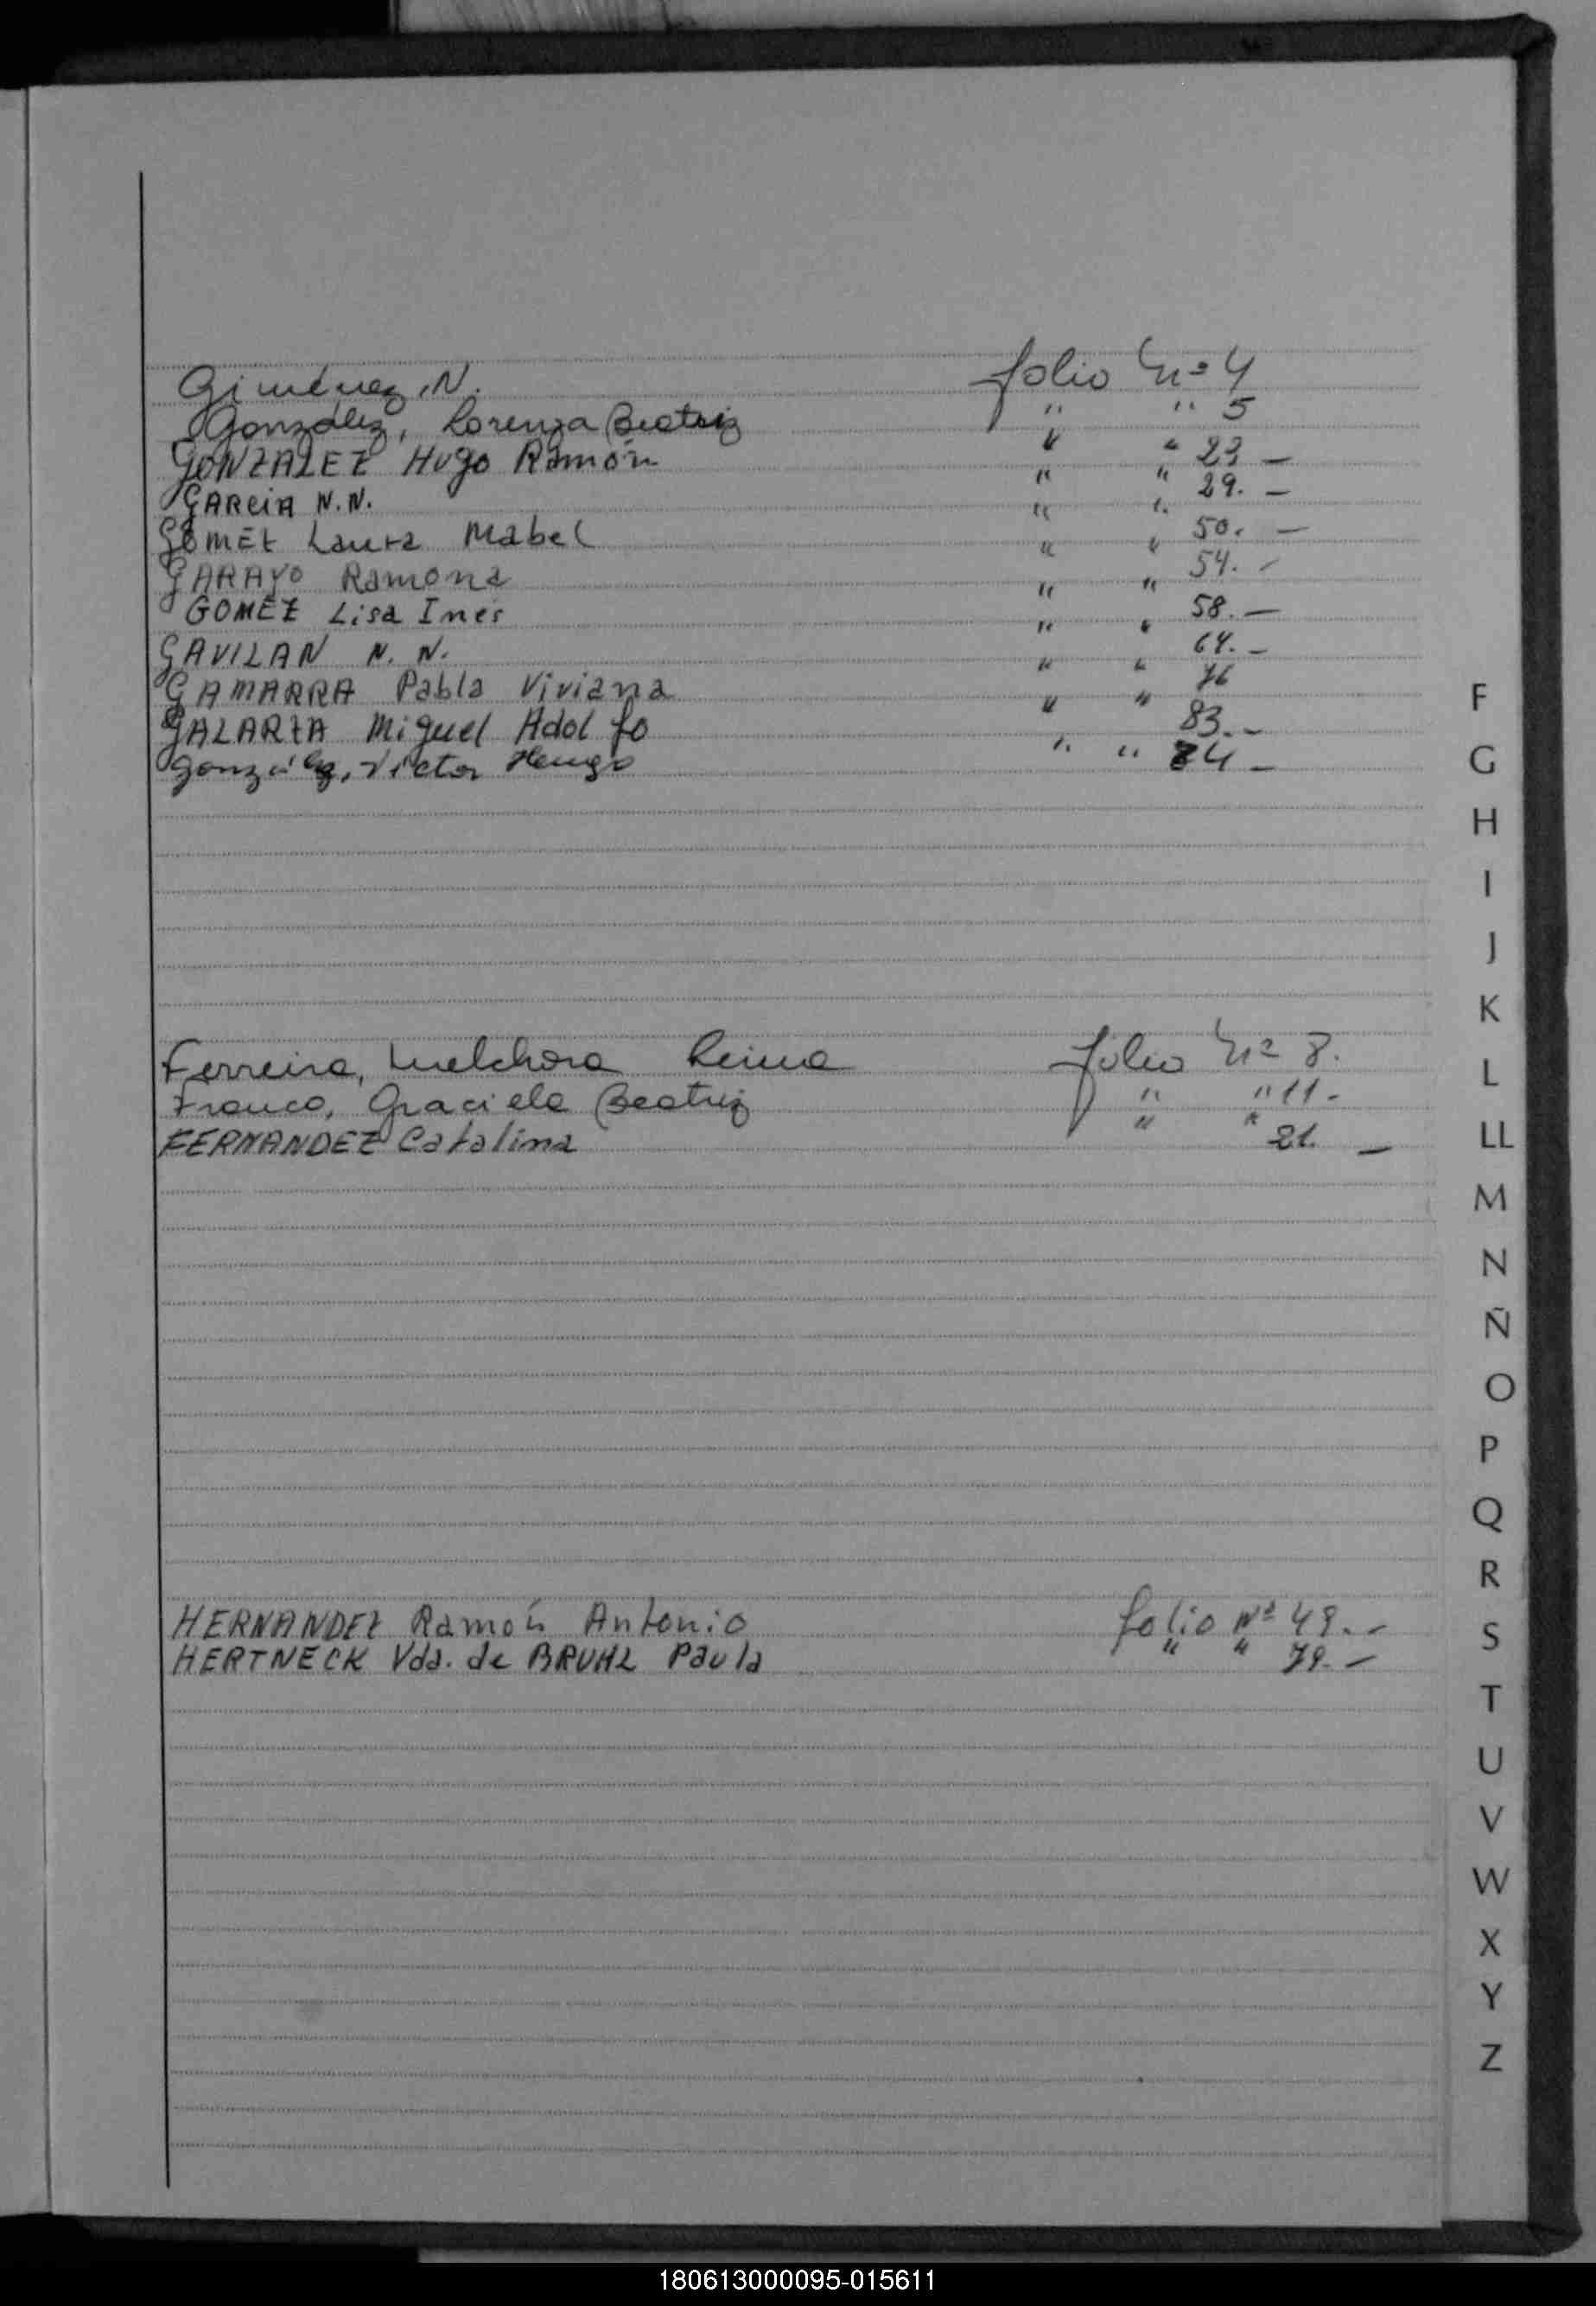 Giménez, N. folio Nº 4
González, Lorenza Beatriz " " 5
GONZALEZ Hugo Ramón " " 23 –
GARCIA N.N. " " 29. –
GOMEZ Laura Mabel " " 50. –
GARAYO Ramona " " 54. –
GOMEZ Lisa Ines " " 58. –
GAVILAN N. N. " " 64. –
GAMARRA Pabla Viviana " " 76
GALARZA Miguel Adolfo " " 83. –
González, Victor Hugo " " 84 –
Ferreira, Melchora Reina folio Nº 8.
Franco, Graciela Beatriz " " 11 -
FERNANDEZ Catalina " " 21. –
HERNANDEZ Ramón Antonio folio Nº 49. –
HERTNECK Vda. de BRUHL Paula " " 79. –
F
G
H
I
J
K
L
LL
M
N
Ñ
O
P
Q
R
S
T
U
V
W
X
Y
Z
180613000095-015611